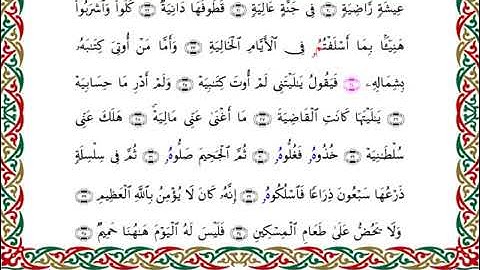 عِيشَةٍ رَّاضِيَةٍ فِى جَنَّةٍ عَالِيَةٍ قُطُوفُهَا دَانِيَةٌ كُلُوا۟ وَٱشْرَبُوا۟
هَنِيٓـًٔۢا بِمَآ أَسْلَفْتُمُۥ فِى ٱلْأَيَّامِ ٱلْخَالِيَةِ وَأَمَّا مَنْ أُوتِىَ كِتَـٰبَهُۥ
بِشِمَالِهِۦ فَيَقُولُ يَـٰلَيْتَنِى لَمْ أُوتَ كِتَـٰبِيَهْ وَلَمْ أَدْرِ مَا حِسَابِيَهْ
يَـٰلَيْتَهَا كَانَتِ ٱلْقَاضِيَةَ مَآ أَغْنَىٰ عَنِّى مَالِيَهْ هَلَكَ عَنِّى
سُلْطَـٰنِيَهْ خُذُوهُۥ فَغُلُّوهُۥ ثُمَّ ٱلْجَحِيمَ صَلُّوهُۥ ثُمَّ فِى سِلْسِلَةٍ
ذَرْعُهَا سَبْعُونَ ذِرَاعًا فَٱسْلُكُوهُۥ إِنَّهُۥ كَانَ لَا يُؤْمِنُ بِٱللَّهِ ٱلْعَظِيمِ
وَلَا يَحُضُّ عَلَىٰ طَعَامِ ٱلْمِسْكِينِ فَلَيْسَ لَهُ ٱلْيَوْمَ هَـٰهُنَا حَمِيمٌ